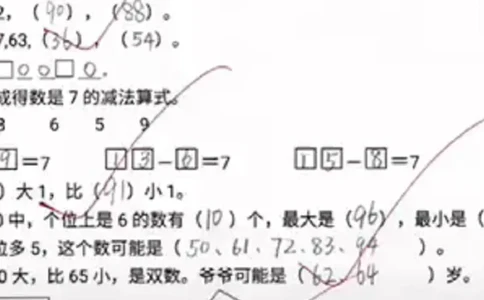 2，（90），（88）。
7,63,（36），（54）。
□○○□○.
成得数是 7 的减法算式。
8 6 5 9
9=7 13-6=7 15-8=7
）大1，比（91）小1。
0中，个位上是6的数有（10）个，最大是（96），最小是（
位多5，这个数可能是（50、61、72、83、94）。
0大，比65小，是双数。爷爷可能是（62、64）岁。